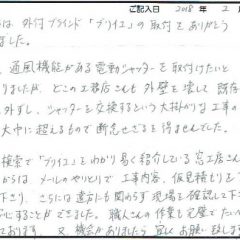 ご記入日 2018 年 2 月
は 外付ブラインド「ブリイユ」の取付をありがとう
ました。
通風機能がある電動シャッターを取付けたいと
りましたが、どこの工務店さんも外壁を壊して既存
外し、シャッターを交換するという大掛かりな工事の
大巾に超えるもので断念せざるを得ませんでした。
検索で「ブリイユ」をわかり易く紹介している窓工房さん
からは メールのやりとりで工事内容、仮見積もりを
下さり、さらには遠方にも関わらず現場を確認して下
心することができました。職人さんの作業も完璧で
ております。又、機会がありましたら 宜しくお願い致しま